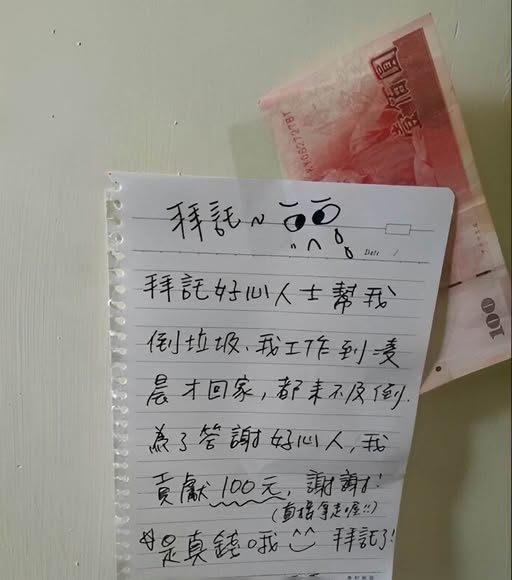 圓佰壹
100
拜託~
Date
拜託好心人士幫我
倒垃圾.我工作到凌
晨才回家,都來不及倒.
為了答謝好心人,我
貢獻100元,謝謝!
(直接拿走喔!!)
是真錢哦 拜託了!